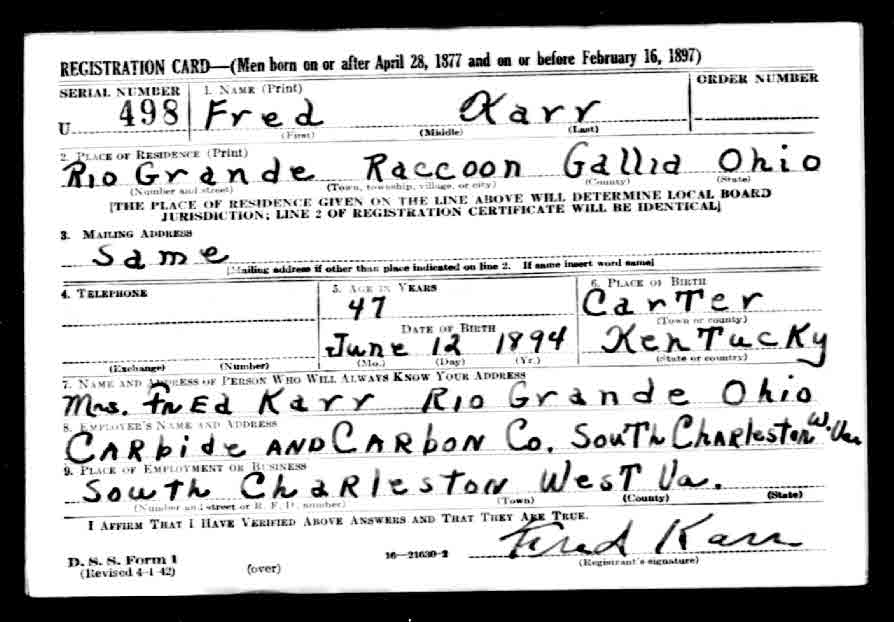 REGISTRATION CARD—(Men born on or after April 28, 1877 and on or before February 16, 1897)
SERIAL NUMBER 1. NAME (Print) ORDER NUMBER
U 498 Fred Karr
(First) (Middle) (Last)
2. PLACE OF RESIDENCE (Print)
Rio Grande Raccoon Gallia Ohio
(Number and street) (Town, township, village, or city) (County) (State)
[THE PLACE OF RESIDENCE GIVEN ON THE LINE ABOVE WILL DETERMINE LOCAL BOARD
JURISDICTION; LINE 2 OF REGISTRATION CERTIFICATE WILL BE IDENTICAL]
3. MAILING ADDRESS
Same
[Mailing address if other than place indicated on line 2. If same insert word same]
4. TELEPHONE 5. AGE IN YEARS 6. PLACE OF BIRTH
47 Carter
(Town or county)
DATE OF BIRTH
June 12 1894 Kentucky
(Exchange) (Number) (Mo.) (Day) (Yr.) (State or country)
7. NAME AND ADDRESS OF PERSON WHO WILL ALWAYS KNOW YOUR ADDRESS
Mrs. Fred Karr Rio Grande Ohio
8. EMPLOYER'S NAME AND ADDRESS
Carbide and Carbon Co. South Charleston W. Va
9. PLACE OF EMPLOYMENT OR BUSINESS
South Charleston West Va.
(Number and street or R. F. D. number) (Town) (County) (State)
I AFFIRM THAT I HAVE VERIFIED ABOVE ANSWERS AND THAT THEY ARE TRUE.
Fred Karr
D. S. S. Form 1 16—21630-2 (Registrant's signature)
(Revised 4-1-42) (over)